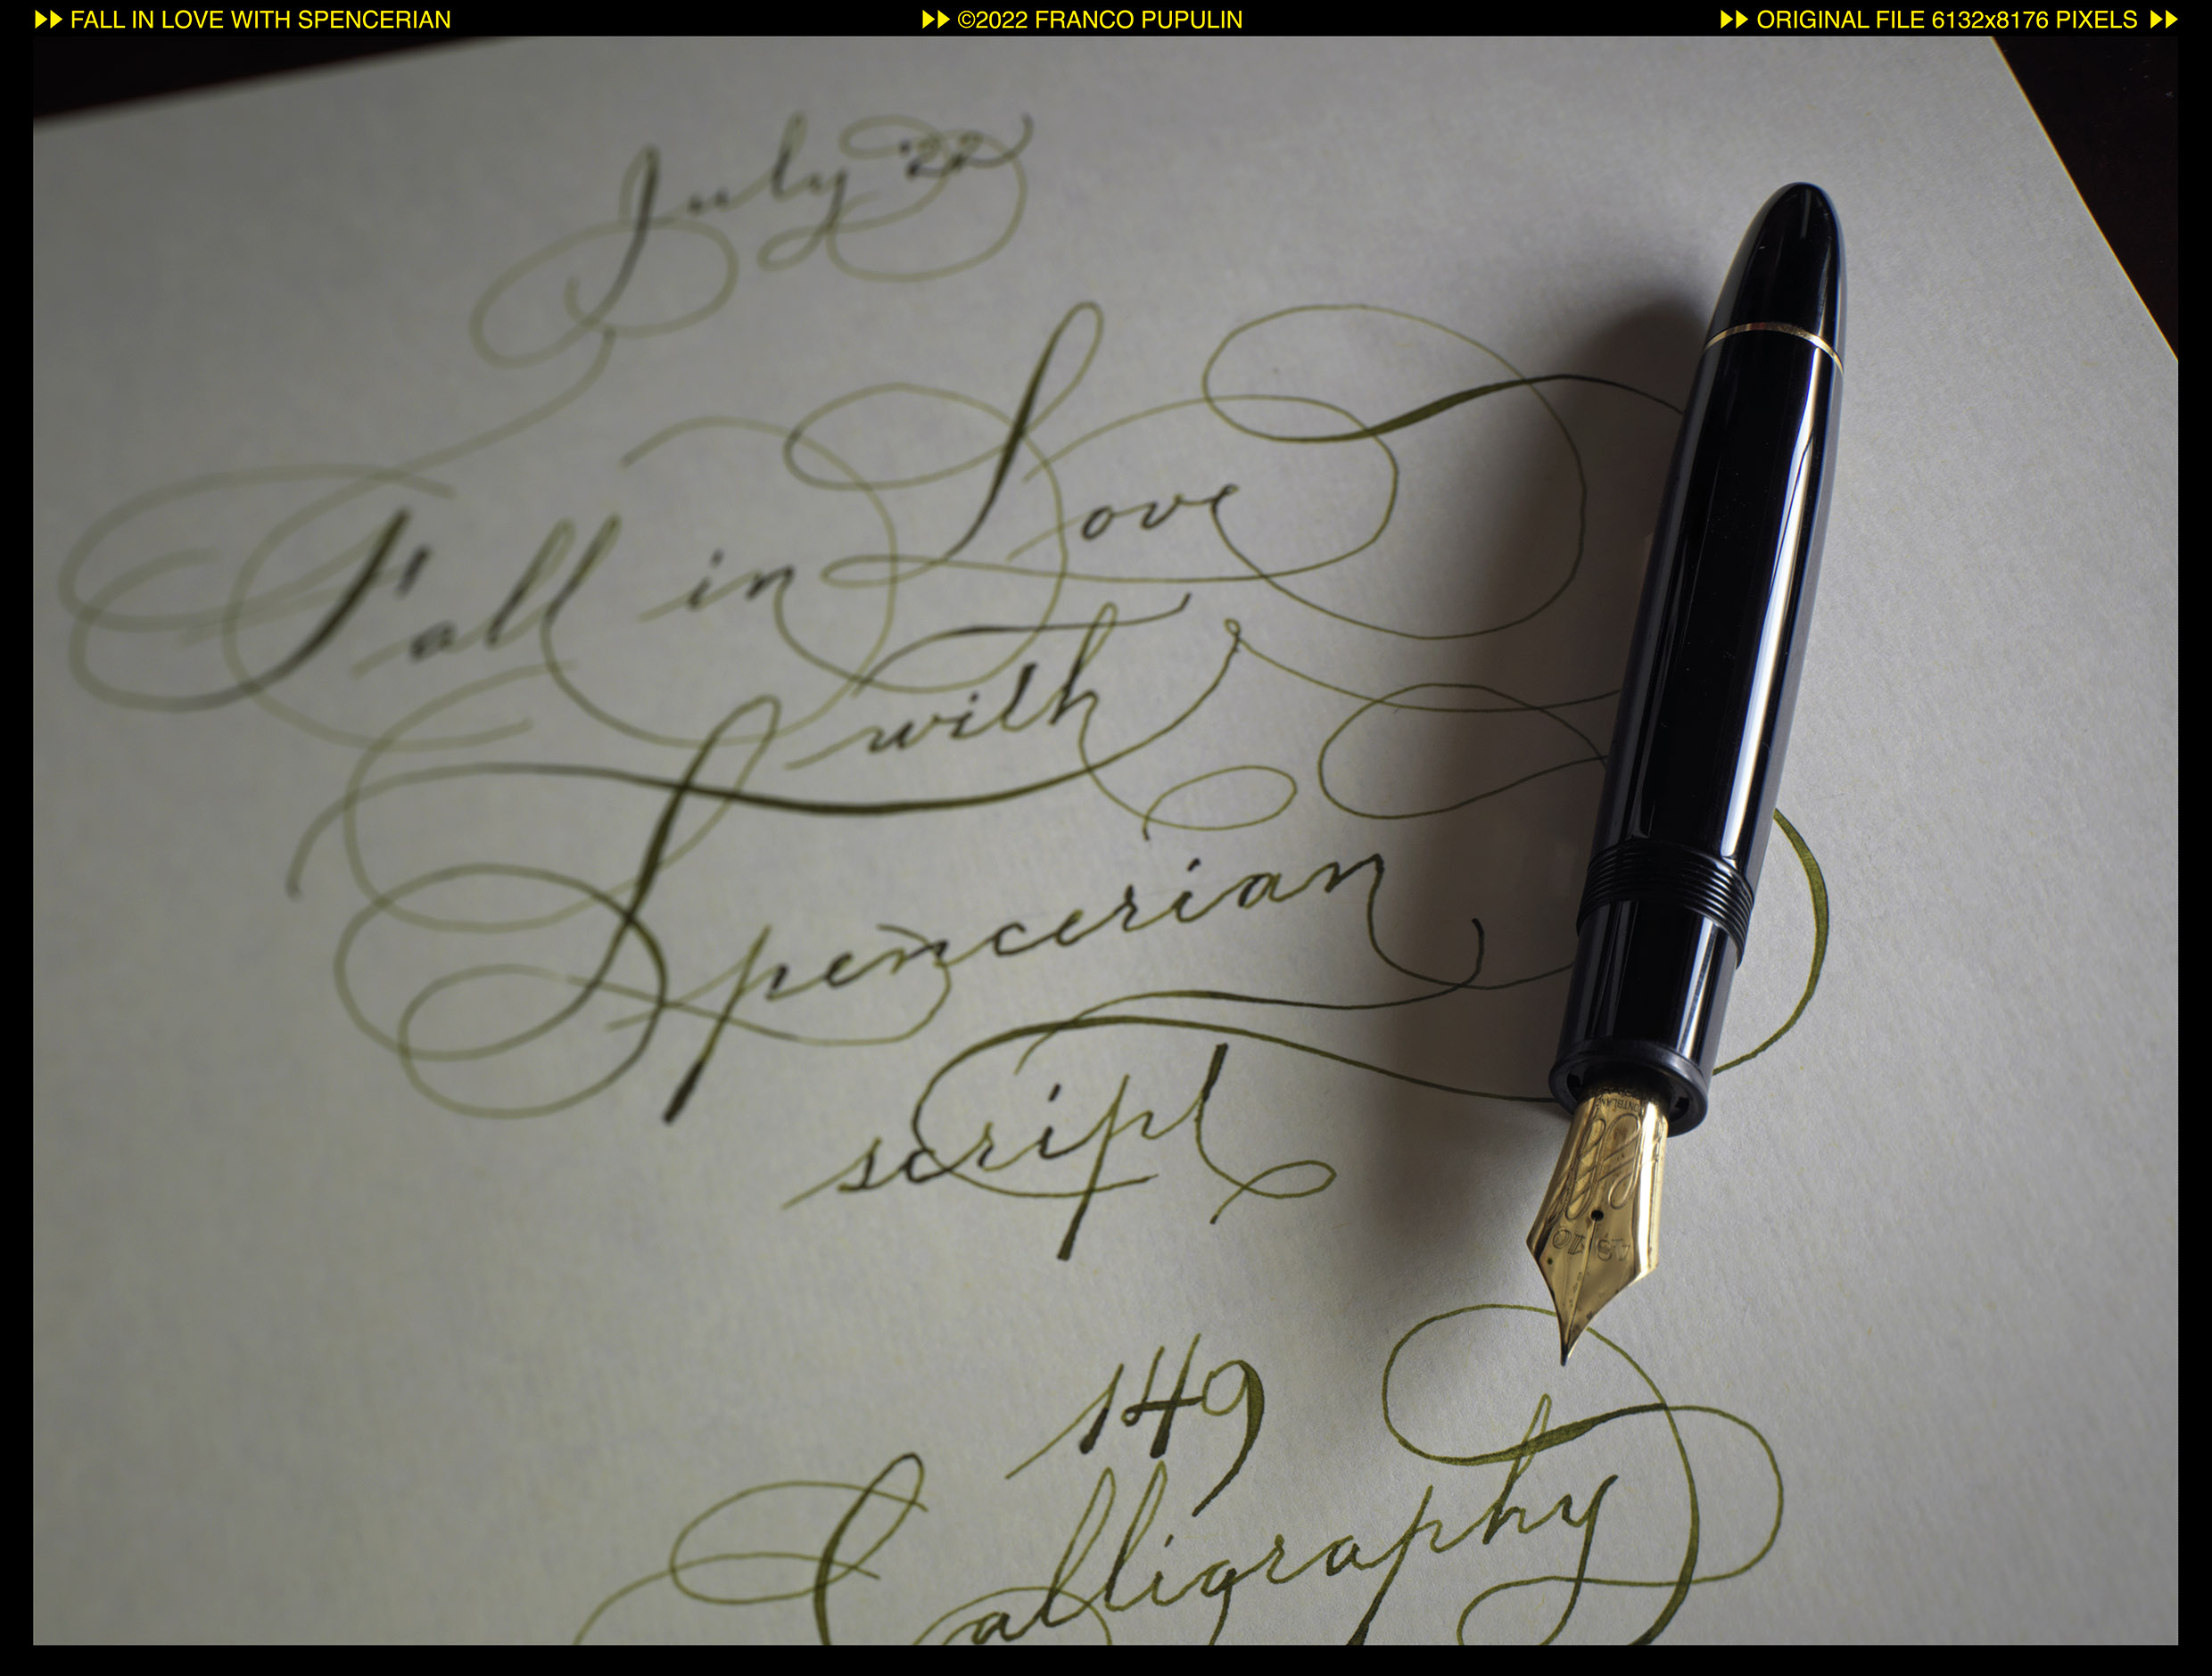 ▶▶ FALL IN LOVE WITH SPENCERIAN ▶▶ ©2022 FRANCO PUPULIN ▶▶ ORIGINAL FILE 6132x8176 PIXELS ▶▶
July '22
Fall in Love
with
Spencerian
script
149
Calligraphy